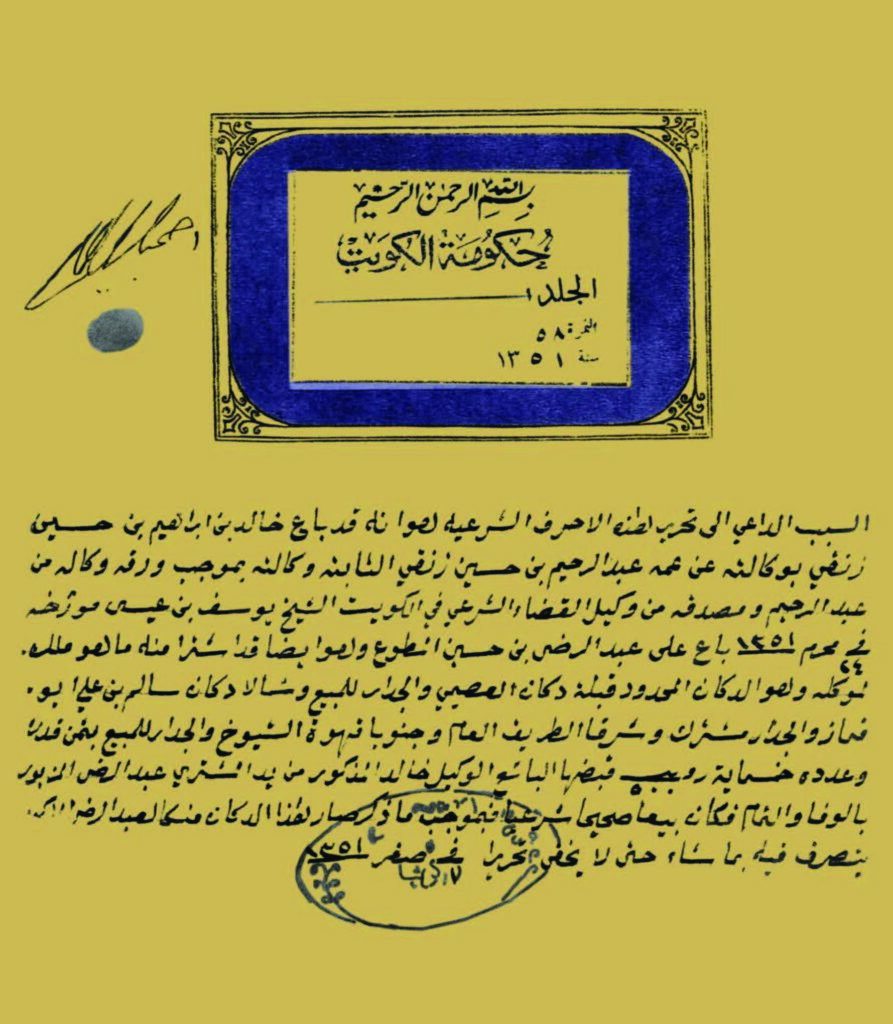 بسم الله الرحمن الرحيم
حكومة الكويت
الجلد ١
النمرة ٥٨
سنة ١٣٥١
السبب الداعي الى تحرير هذه الاحرف الشرعيه هوانه قد باع خالد بن ابراهيم بن حسين
زنقي بوكالته عن عمه عبدالرحيم بن حسين زنقي الثابته وكالته بموجب ورقه وكاله من
عبدالرحيم ومصدقه من وكيل القضاء الشرعي في الكويت الشيخ يوسف بن عيسى مورخه
في ٢٤ محرم ١٣٥١ باع على عبدالرضى بن حسين وهوايضا قد اشترا منه ماهو ملك
لموكله وهو الدكان المحدود قبلة دكان العصيمي والجدار للمبيع وشمالا دكان سالم بن علي ابو
قماز والجدار مشترك وشرقا الطريق العام وجنوبا قهوة الشيوخ والجدار للمبيع بثمن قدره
وعدده خمماية روبيه قبضها البائع الوكيل خالد المذكور من يد المشتري عبدالرضى المزبور
بالوفا والتمام فكان بيعا صحيحا شرعيا فبموجب ماذكر صار هذا الدكان ملكا لعبدالرضا
يتصرف فيه بما شاء حتى لا يخفى تحريرا في ٧ صفر ١٣٥١